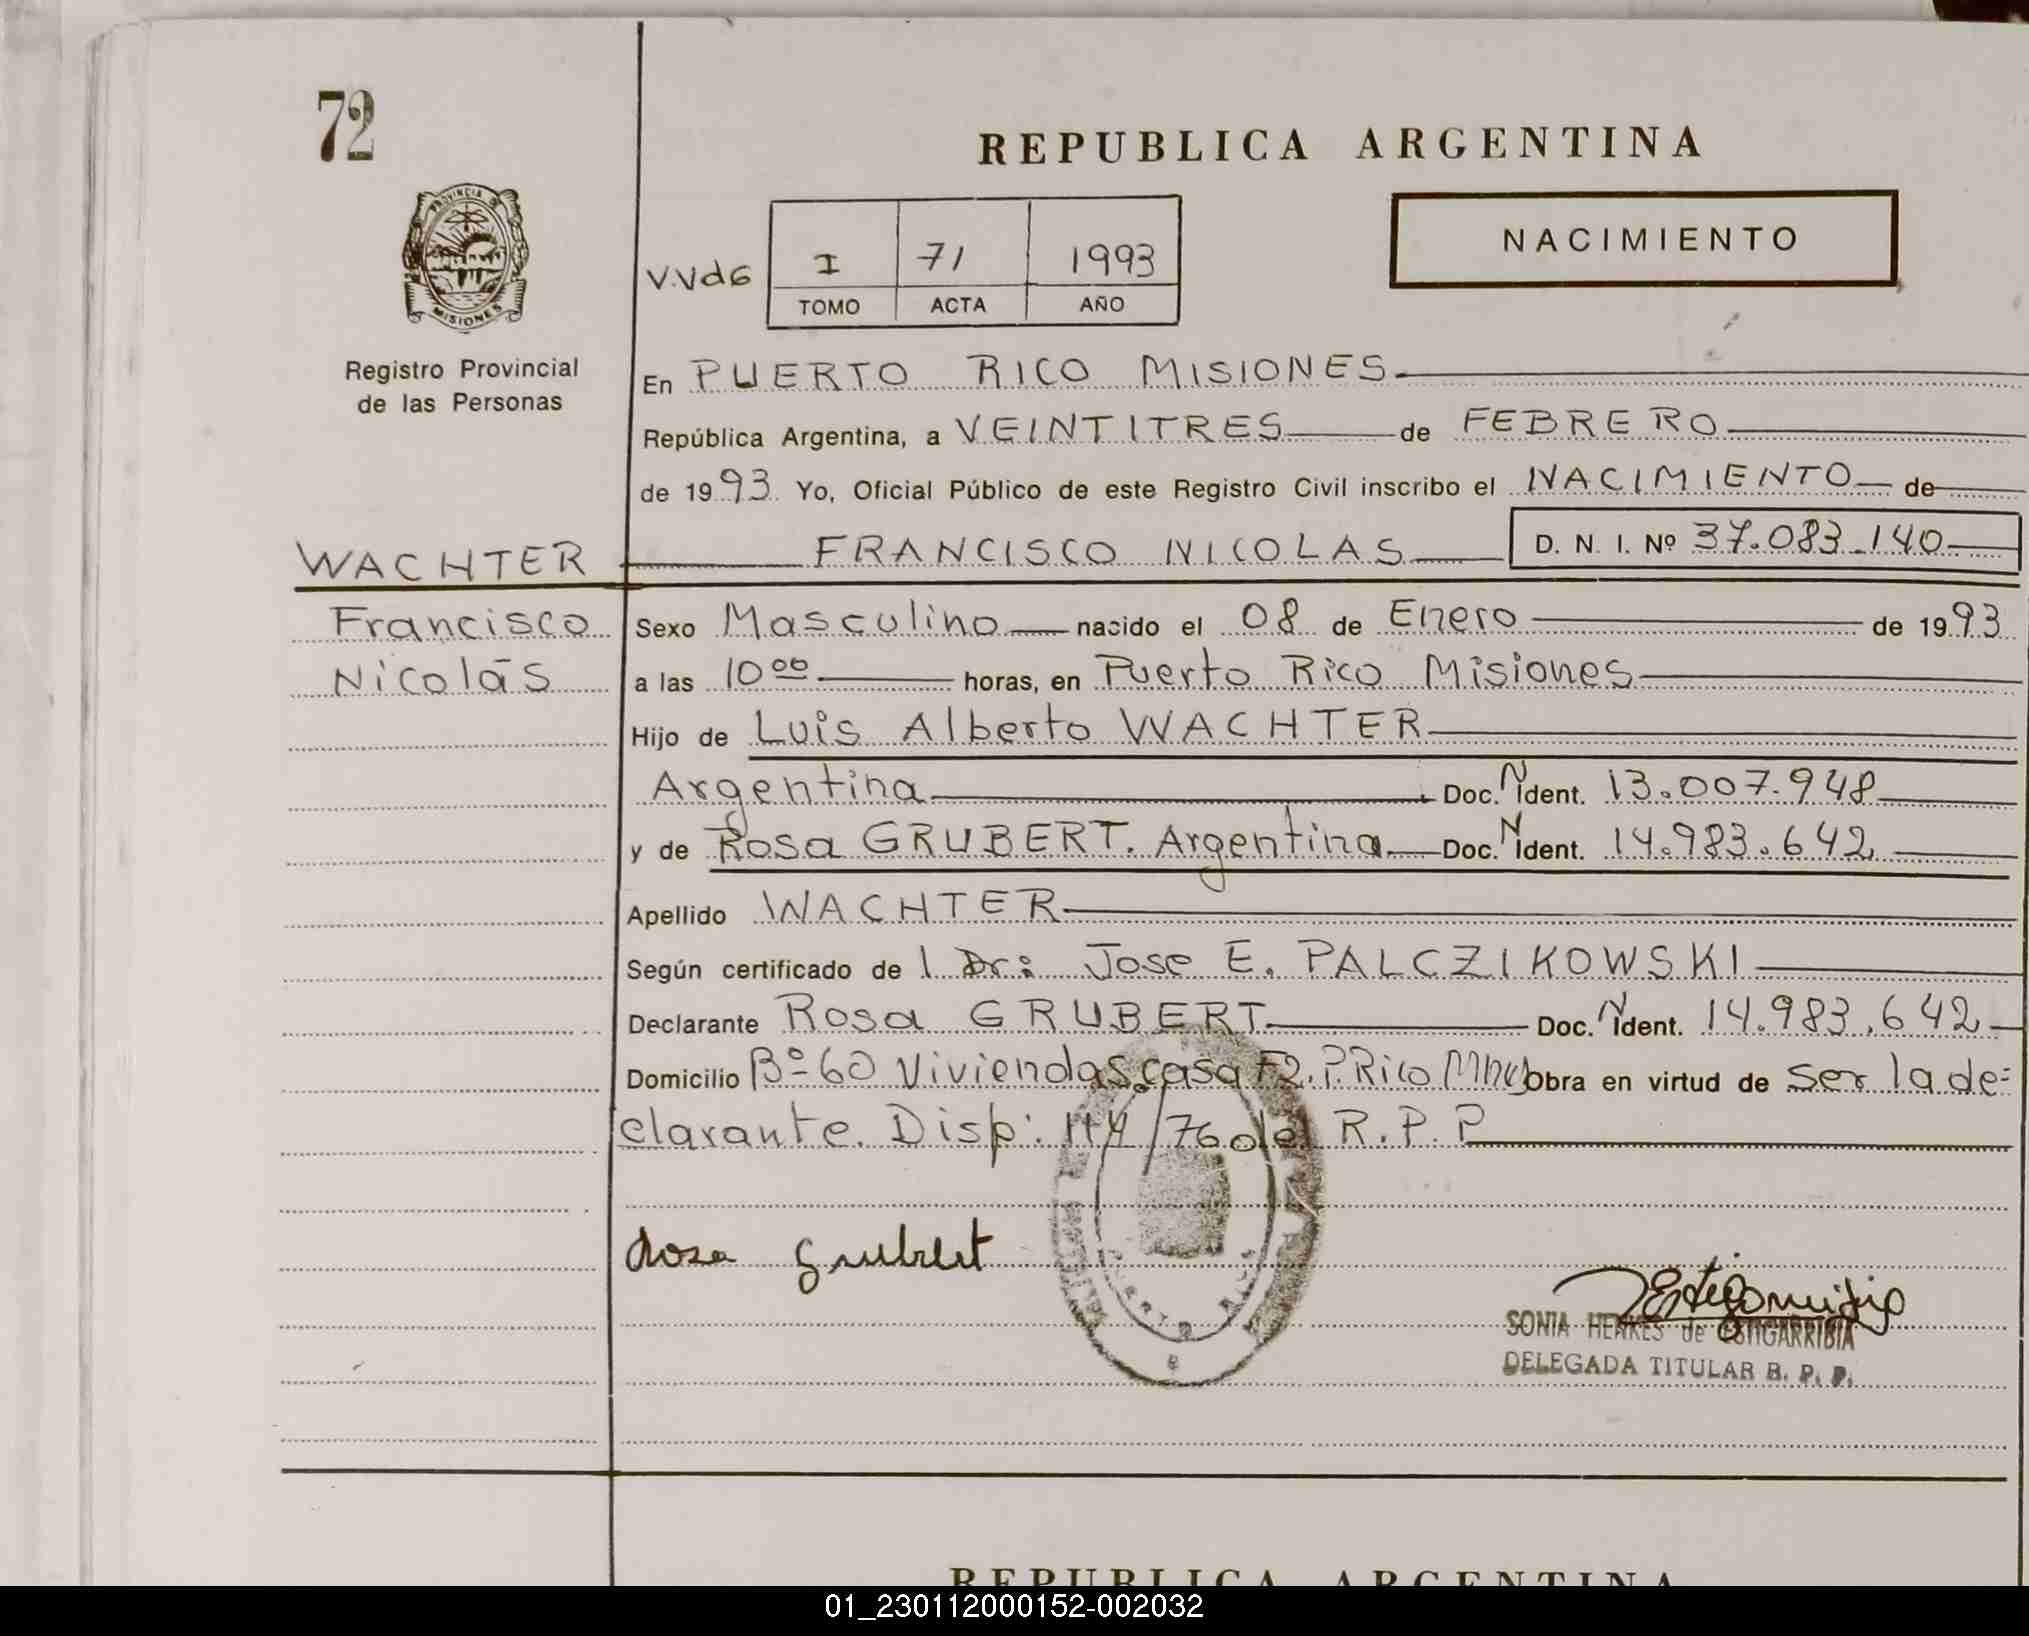 72
REPUBLICA ARGENTINA
PROVINCIA DE
MISIONES
Registro Provincial
de las Personas
V.Vd6
I 71 1993
TOMO ACTA AÑO
NACIMIENTO
En PUERTO RICO MISIONES
República Argentina, a VEINTITRES de FEBRERO
de 1993 Yo, Oficial Público de este Registro Civil inscribo el NACIMIENTO de
WACHTER FRANCISCO NICOLAS D. N. I. Nº 37.083.140
Francisco Sexo Masculino nacido el 08 de Enero de 1993
Nicolás a las 10 00 horas, en Puerto Rico Misiones
Hijo de Luis Alberto WACHTER
Argentina Doc. N Ident. 13.007.948
y de Rosa GRUBERT. Argentina Doc. N Ident. 14.983.642
Apellido WACHTER
Según certificado de l Dr: Jose E. PALCZIKOWSKI
Declarante Rosa GRUBERT Doc. N Ident. 14.983.642
Domicilio Bº 60 Viviendas casa 72. P.Rico Mnes Obra en virtud de ser la de=
clarante. Disp: 114/76 del R.P.P
Rosa Grubert
SONIA HENKES de ESTIGARRIBIA
DELEGADA TITULAR R. P. P.
REPUBLICA ARGENTINA
01_230112000152-002032